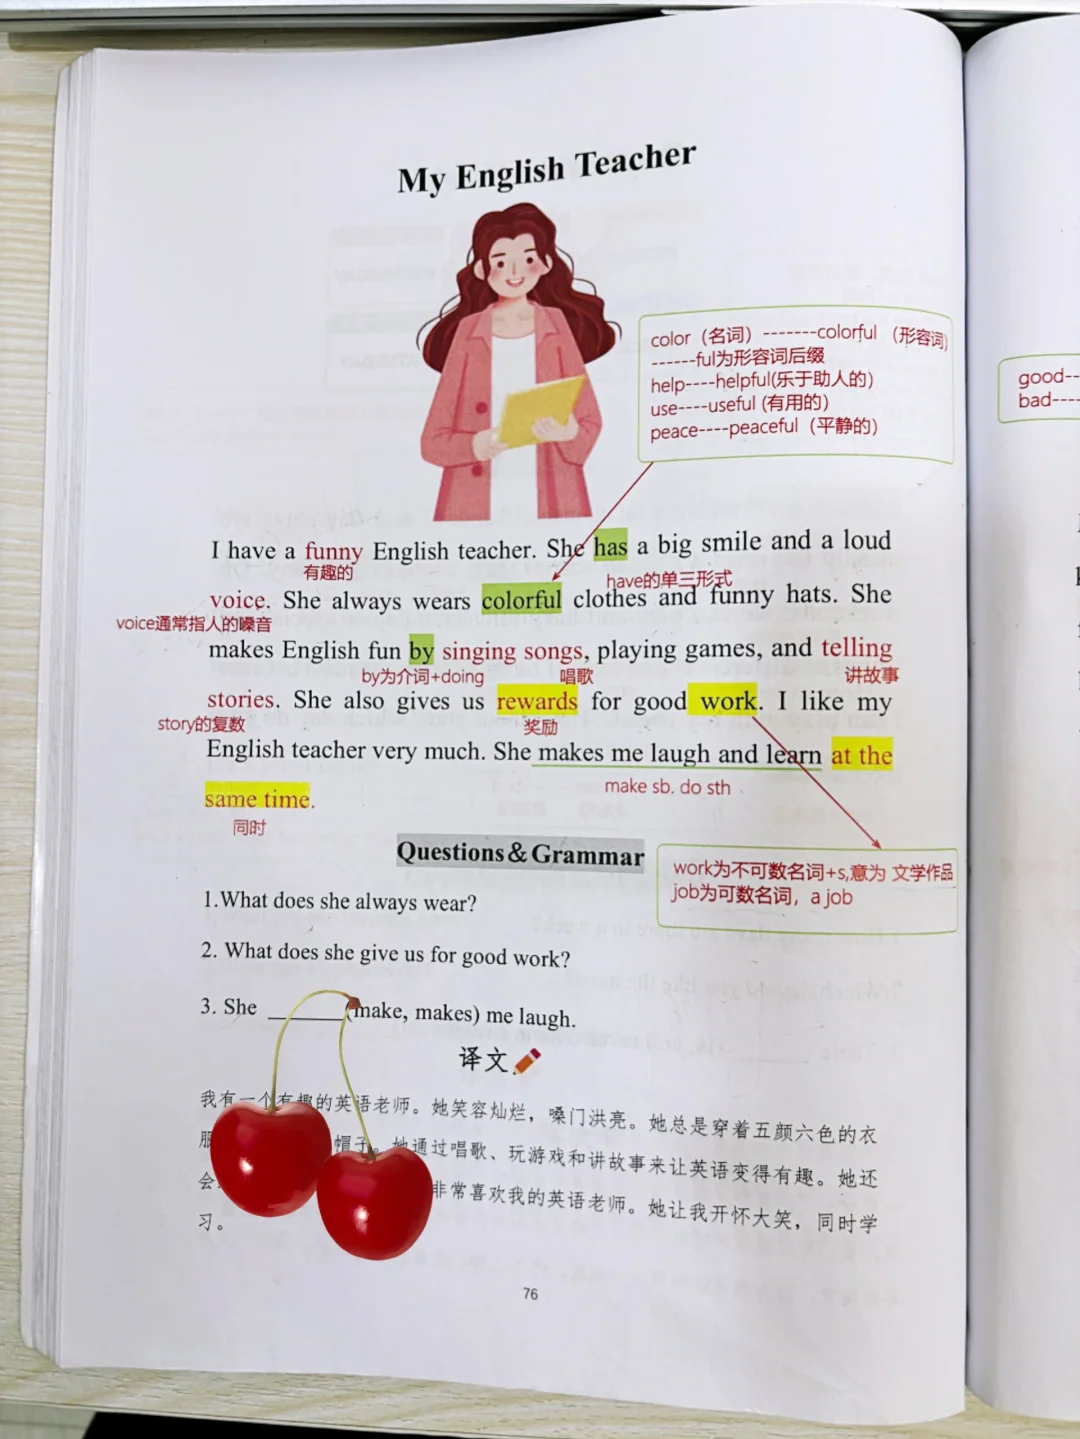 My English Teacher
color（名词）-------colorful （形容词）
------ful为形容词后缀
help----helpful(乐于助人的）
use----useful (有用的）
peace----peaceful（平静的）
good--
bad----
I have a funny English teacher. She has a big smile and a loud
有趣的
have的单三形式
voice. She always wears colorful clothes and funny hats. She
voice通常指人的嗓音
makes English fun by singing songs, playing games, and telling
by为介词+doing
唱歌
讲故事
stories. She also gives us rewards for good work. I like my
story的复数
奖励
English teacher very much. She makes me laugh and learn at the
make sb. do sth
same time.
同时
Questions＆Grammar
work为不可数名词+s,意为 文学作品
job为可数名词，a job
1.What does she always wear?
2. What does she give us for good work?
3. She ______(make, makes) me laugh.
译文
我有一个有趣的英语老师。她笑容灿烂，嗓门洪亮。她总是穿着五颜六色的衣
服 帽子。她通过唱歌、玩游戏和讲故事来让英语变得有趣。她还
会 非常喜欢我的英语老师。她让我开怀大笑，同时学
习。
76